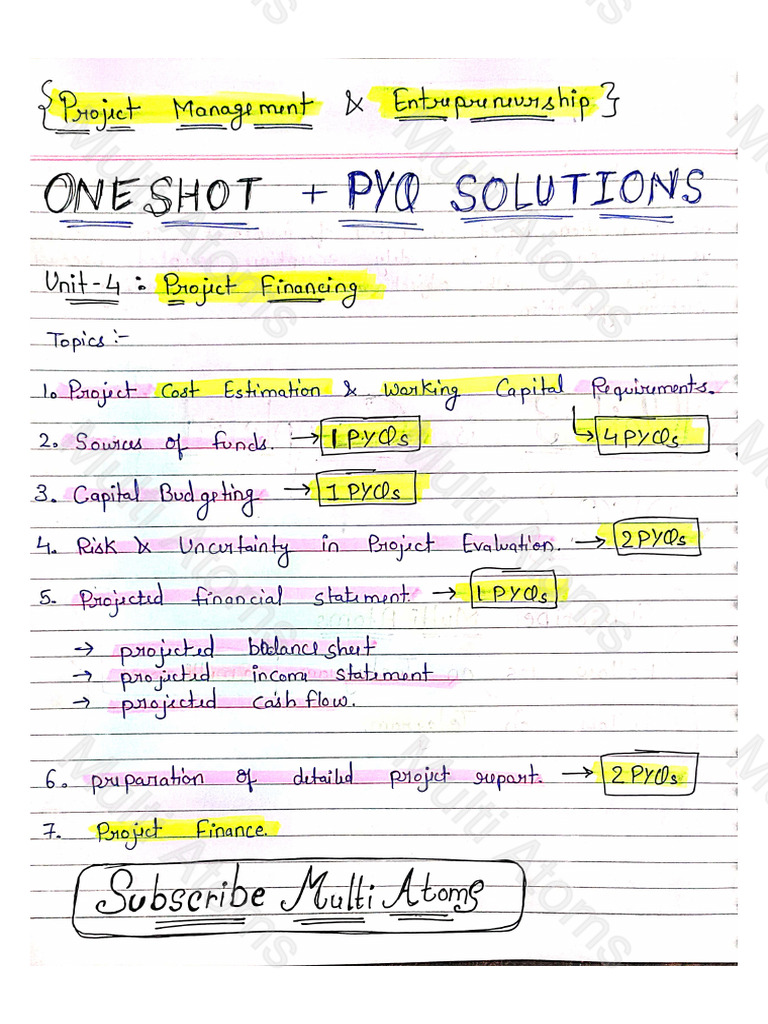 {Project Management & Entrepreneurship}
ONE SHOT + PYQ SOLUTIONS
Unit-4 : Project Financing
Topics :-
1. Project Cost Estimation & Working Capital Requirements.
2. Sources of funds. → 1 PYQs ↳ 4 PYQs
3. Capital Budgeting → 1 PYQs
4. Risk & Uncertainty in Project Evaluation. → 2 PYQs
5. Projected financial statement. → 1 PYQs
→ projected balance sheet
→ projected income statement
→ projected cash flow.
6. preparation of detailed project report. → 2 PYQs
7. Project Finance.
Subscribe Multi Atoms
Multi Atoms